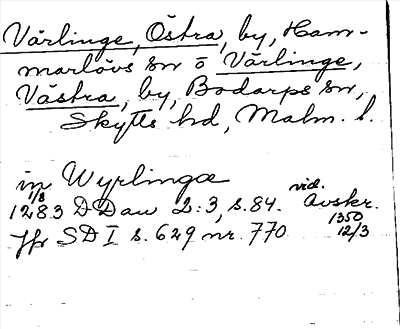 Värlinge, Östra, by, Ham-
marlövs sn o Värlinge,
Västra, by, Bodarps sn,
Skytts hd, Malm. l.
in Wyrlingæ
1/8 1283 DDan 2:3, s. 84. vid. Avskr. 1350 12/3
Jfr SD I s. 629 nr. 770